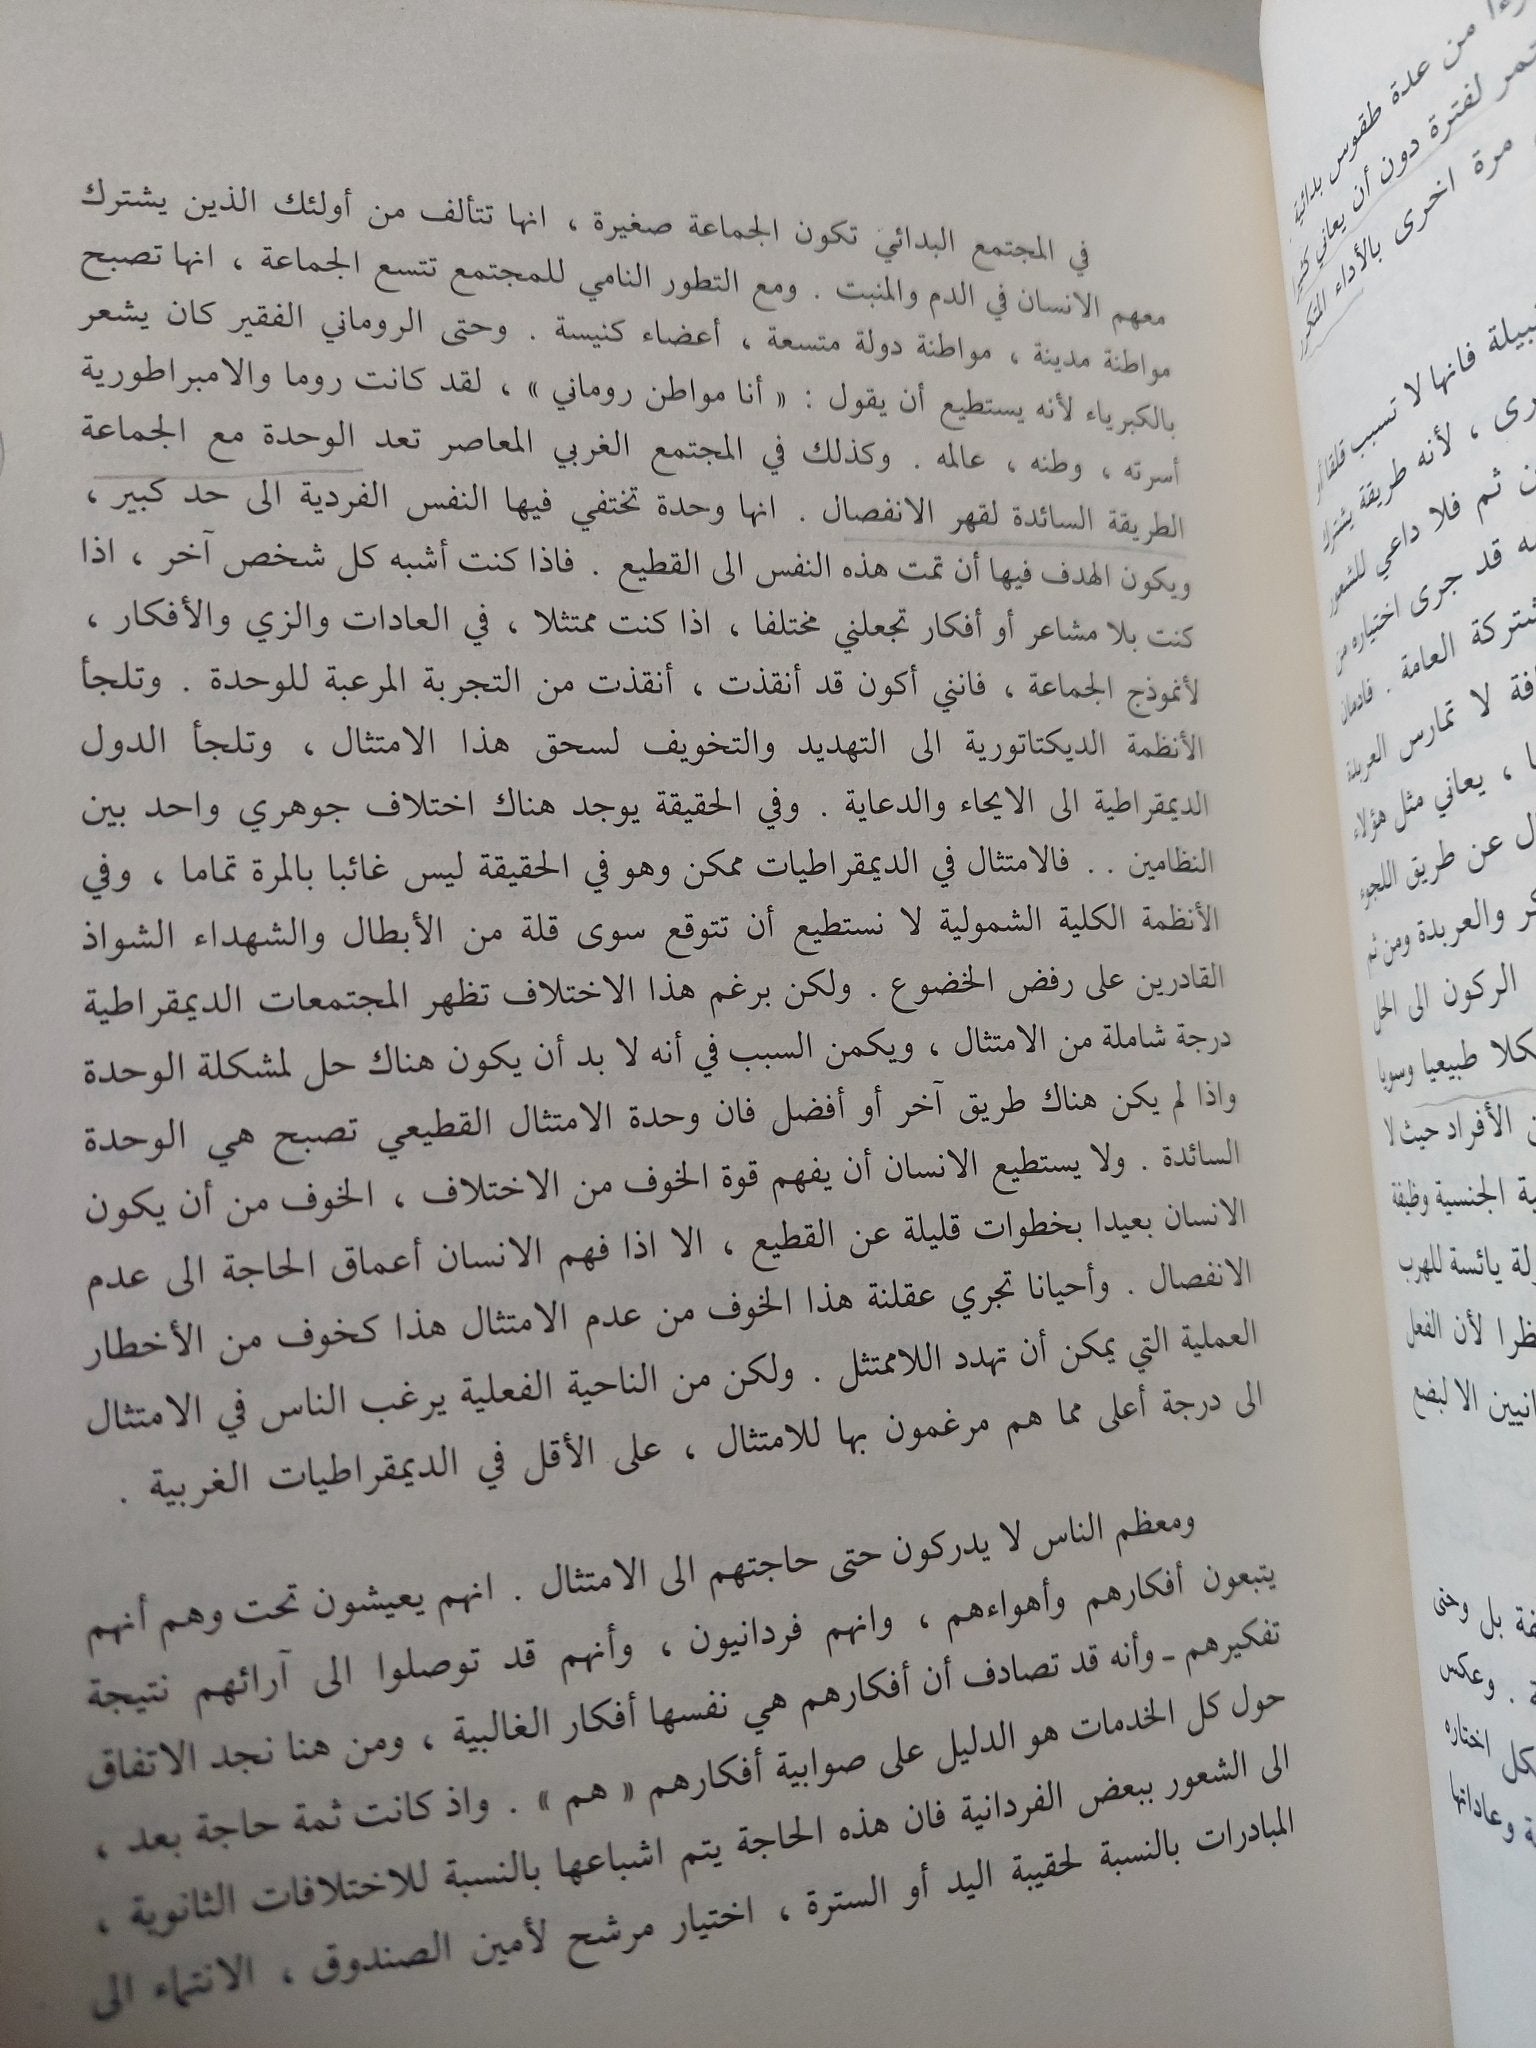 في المجتمع البدائي تكون الجماعة صغيرة ، انها تتألف من أولئك الذين يشترك
معهم الانسان في الدم والمنبت . ومع التطور النامي للمجتمع تتسع الجماعة ، انها تصبح
مواطنة مدينة ، مواطنة دولة متسعة ، أعضاء كنيسة . وحتى الروماني الفقير كان يشعر
بالكبرياء لأنه يستطيع أن يقول : « أنا مواطن روماني » ، لقد كانت روما والامبراطورية
أسرته ، وطنه ، عالمه . وكذلك في المجتمع الغربي المعاصر تعد الوحدة مع الجماعة
الطريقة السائدة لقهر الانفصال . انها وحدة تختفي فيها النفس الفردية الى حد كبير ،
ويكون الهدف فيها أن تمت هذه النفس الى القطيع . فاذا كنت أشبه كل شخص آخر ، اذا
كنت بلا مشاعر أو أفكار تجعلني مختلفا ، اذا كنت ممتثلا ، في العادات والزي والأفكار ،
لأنموذج الجماعة ، فانني أكون قد أنقذت ، أنقذت من التجربة المرعبة للوحدة . وتلجأ
الأنظمة الديكتاتورية الى التهديد والتخويف لسحق هذا الامتثال ، وتلجأ الدول
الديمقراطية الى الايحاء والدعاية . وفي الحقيقة يوجد هناك اختلاف جوهري واحد بين
النظامين . . فالامتثال في الديمقراطيات ممكن وهو في الحقيقة ليس غائبا بالمرة تماما ، وفي
الأنظمة الكلية الشمولية لا نستطيع أن تتوقع سوى قلة من الأبطال والشهداء الشواذ
القادرين على رفض الخضوع . ولكن برغم هذا الاختلاف تظهر المجتمعات الديمقراطية
درجة شاملة من الامتثال ، ويكمن السبب في أنه لا بد أن يكون هناك حل لمشكلة الوحدة
واذا لم يكن هناك طريق آخر أو أفضل فان وحدة الامتثال القطيعي تصبح هي الوحدة
السائدة . ولا يستطيع الانسان أن يفهم قوة الخوف من الاختلاف ، الخوف من أن يكون
الانسان بعيدا بخطوات قليلة عن القطيع ، الا اذا فهم الانسان أعماق الحاجة الى عدم
الانفصال . وأحيانا تجري عقلنة هذا الخوف من عدم الامتثال هذا كخوف من الأخطار
العملية التي يمكن أن تهدد اللاممتثل . ولكن من الناحية الفعلية يرغب الناس في الامتثال
الى درجة أعلى مما هم مرغمون بها للامتثال ، على الأقل في الديمقراطيات الغربية .
ومعظم الناس لا يدركون حتى حاجتهم الى الامتثال . انهم يعيشون تحت وهم أنهم
يتبعون أفكارهم وأهواءهم ، وانهم فردانيون ، وأنهم قد توصلوا الى آرائهم نتيجة
تفكيرهم - وأنه قد تصادف أن أفكارهم هي نفسها أفكار الغالبية ، ومن هنا نجد الاتفاق
حول كل الخدمات هو الدليل على صوابية أفكارهم « هم » . واذ كانت ثمة حاجة بعد ،
الى الشعور ببعض الفردانية فان هذه الحاجة يتم اشباعها بالنسبة للاختلافات الثانوية ،
المبادرات بالنسبة لحقيبة اليد أو السترة ، اختيار مرشح لأمين الصندوق ، الانتماء الى
من عدة طقوس بدائية
لفترة دون أن يعاني كثيرا
مرة اخرى بالأداء المتكرر
فانها لا تسبب قلقا أو
، لأنه طريقة يشترك
ثم فلا داعي للشعور
قد جرى اختياره من
العامة . فادمان
لا تمارس العربدة
، يعاني مثل هؤلاء
عن طريق اللجوء
والعربدة ومن ثم
الركون الى الحل
طبيعيا وسويا
الأفراد حيث لا
الجنسية وظيفة
يائسة للهرب
لأن الفعل
الا لبضع
بل وحتى
. وعكس
اختاره
وعاداتها